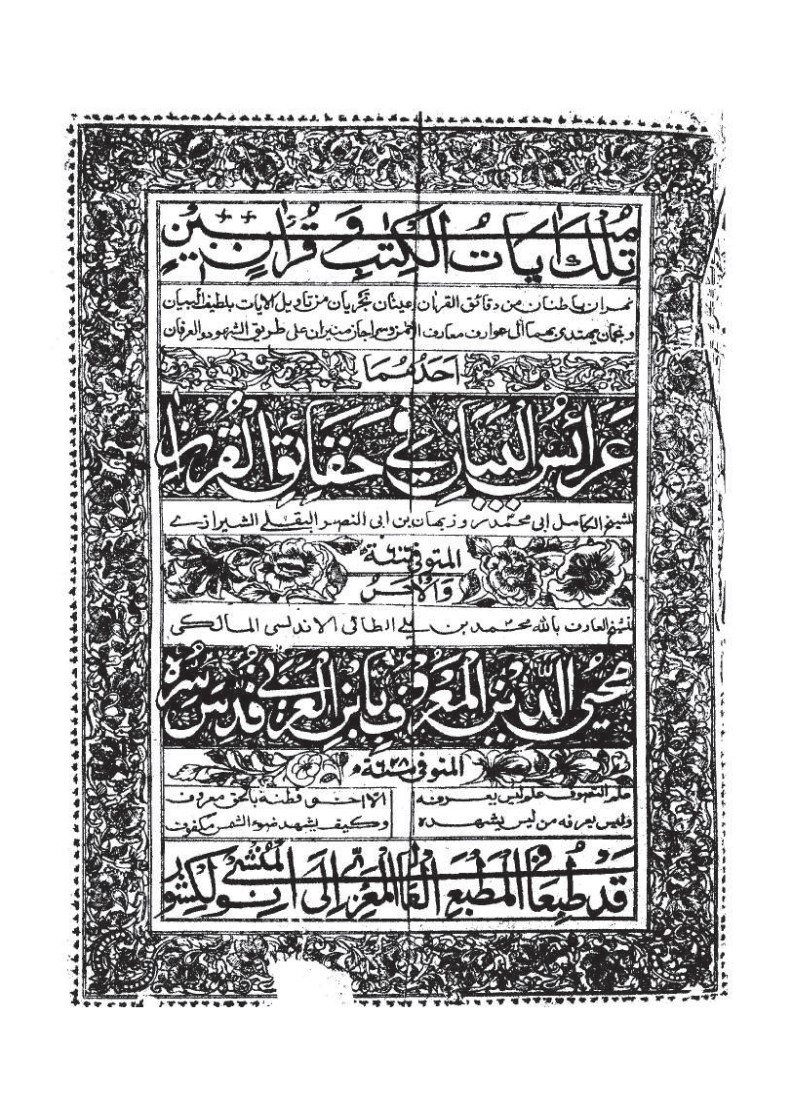 تلك ايات الكتب و قران مبين
نهران باطنان من دقائق القران عينان تجريان من تاويل الايات بلطيف البيان
ونجمان يهتدي بهما الى عوارف معارف الرمز وسراجان منيران على طريق الشهود والعرفان
احدهما
عرائس البيان في حقائق القران
للشيخ الكامل ابي محمد روزبهان بن ابي النصر البقلي الشيرازي
المتوفى سنة ٦٠٦ه
والاخر
للشيخ العارف بالله محمد بن علي الطائي الاندلسي المالكي
محيي الدين المعروف بابن العربي قدس سره
المتوفى سنة ٦٣٨ه
علم التصوف علم ليس يعرفه الا اخو فطنة بالحق معروف
وليس يعرفه من ليس يشهده وكيف يشهد ضوء الشمس مكفوف
قد طبعا في المطبع العالي المعزي الى المنشي نولكشور